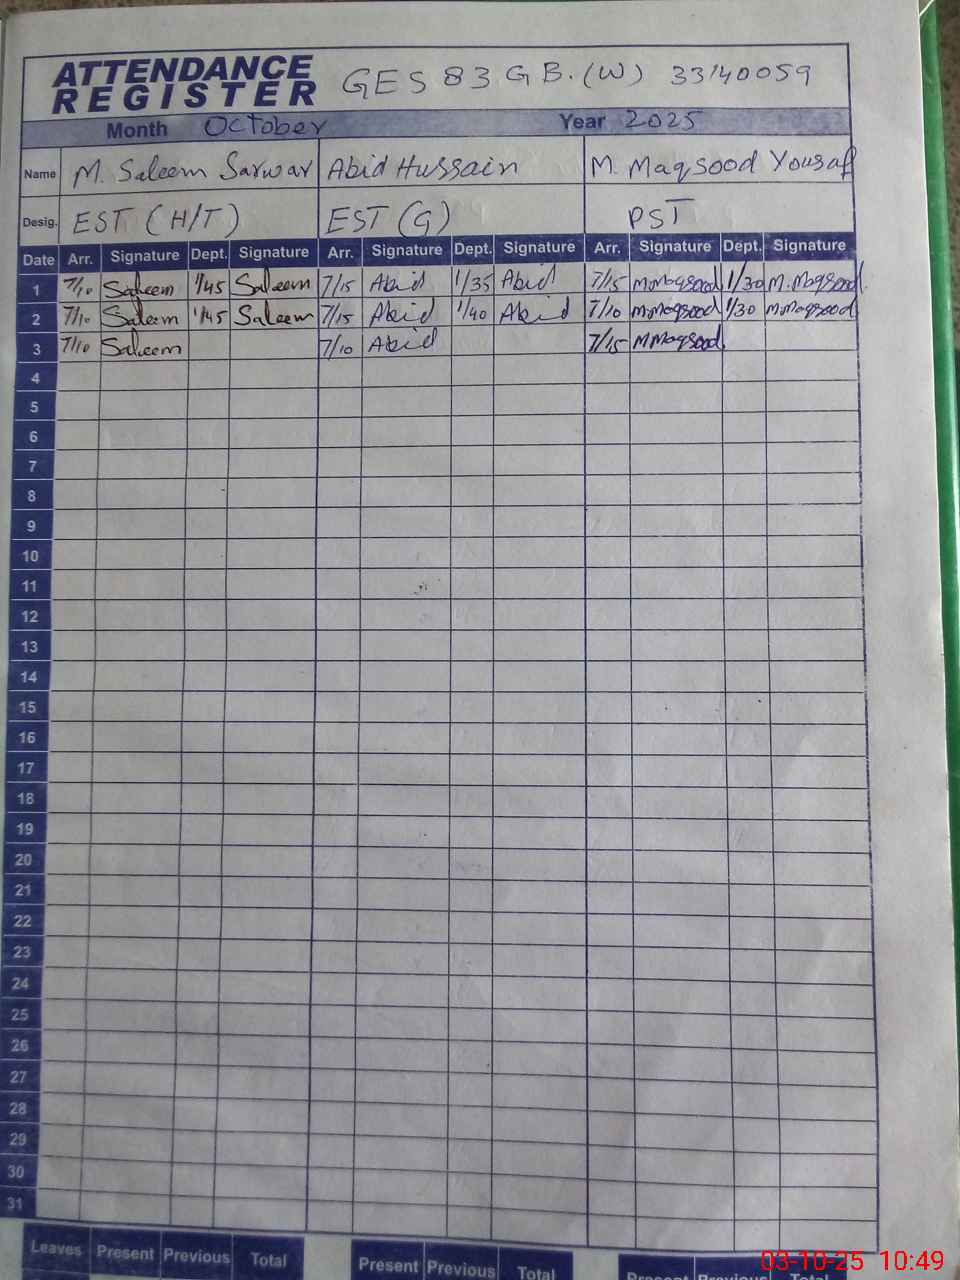 ATTENDANCE REGISTER GES 83 GB.(W) 33140059
Month October Year 2025
Name M. Saleem Sarwar Abid Hussain M. Maqsood Yousaf
Desig. EST (H/T) EST (G) PST
Date Arr. Signature Dept. Signature Arr. Signature Dept. Signature Arr. Signature Dept. Signature
1 7/10 Saleem 1/45 Saleem 7/15 Abid 1/35 Abid 7/15 M.Maqsood 1/30 M.Maqsood
2 7/10 Saleem 1/45 Saleem 7/15 Abid 1/40 Abid 7/10 M.Maqsood 1/30 M.Maqsood
3 7/10 Saleem 7/10 Abid 7/15 M.Maqsood
4
5
6
7
8
9
10
11
12
13
14
15
16
17
18
19
20
21
22
23
24
25
26
27
28
29
30
31
Leaves Present Previous Total Present Previous Total Present Previous Total
03-10-25 10:49